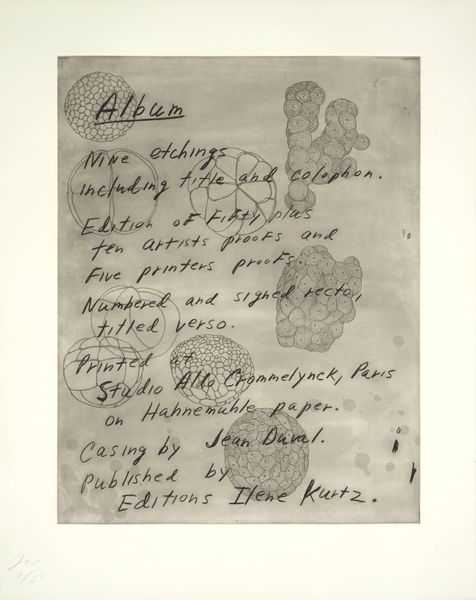 Album
Nine etchings
including title and colophon.
Edition of Fifty plus
ten artists proofs and
Five printers proofs.
Numbered and signed recto,
titled verso.
Printed at
Studio Aldo Crommelynck, Paris
on Hahnemuhle paper.
Casing by Jean Duval.
Published by
Editions Ilene Kurtz.